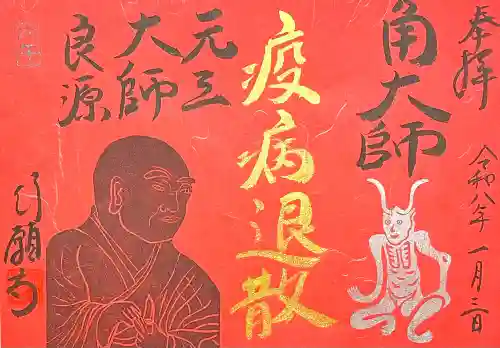 奉拝
令和八年一月三日
角大師
疫病退散
元三
大師
良源
行願寺